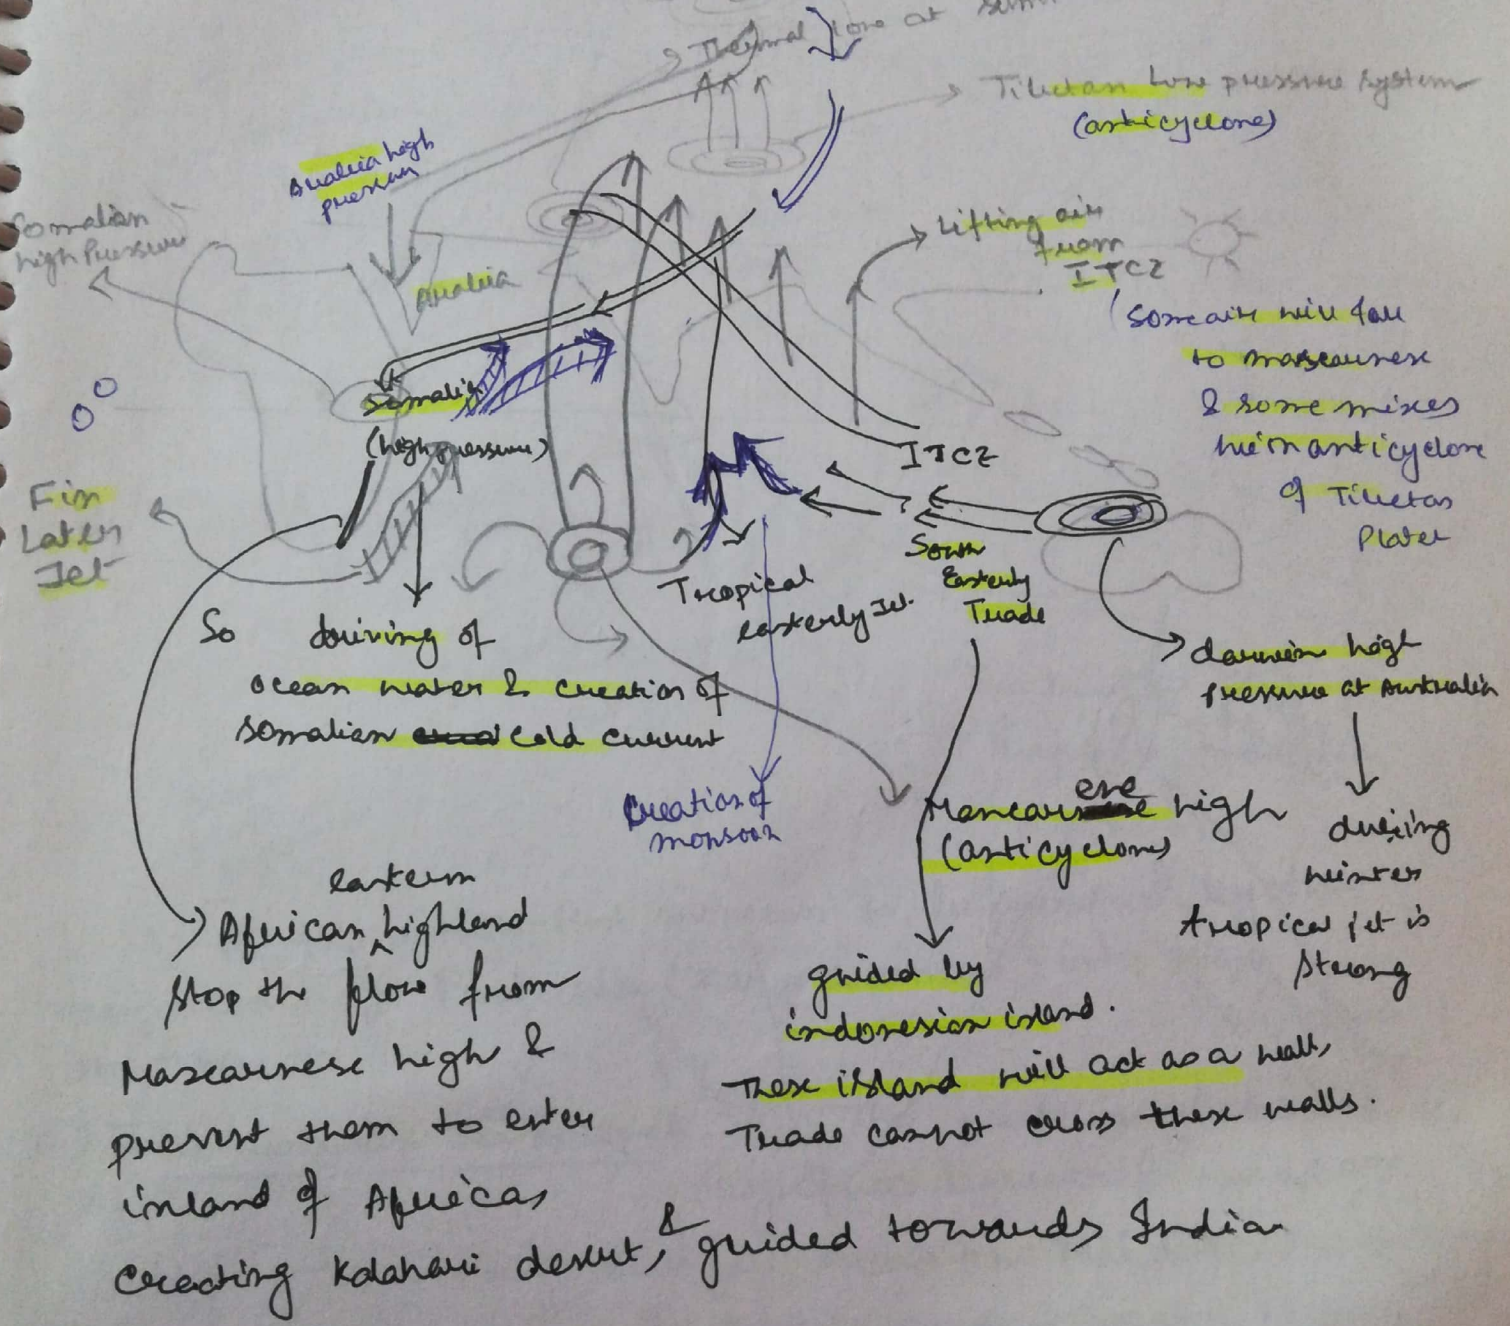 Thermal low at
Tibetan low pressure system
(anticyclone)
Arabia high
pressure
Somalian
high Pressure
Arabia
Lifting air
from
ITCZ
Some air will fall
to mascarnese
& some mixes
with anticyclone
of Tibetan
Plater
0°
Somalia
(high pressure)
ITCZ
Fin
Later
Jet
South
Easterly
Trade
Tropical
easterly Jet.
So driving of
ocean water & creation of
somalian cold current
darwin high
pressure at Australia
Creation of
monsoon
Mascarene high
(anticyclone)
during
winter
tropical jet is
strong
African eastern highland
stop the flow from
Mascarnese high &
prevent them to enter
inland of Africas
creating Kalahari desert, & guided towards India
guided by
indonesian island.
These island will act as a wall,
Trade cannot cross these walls.